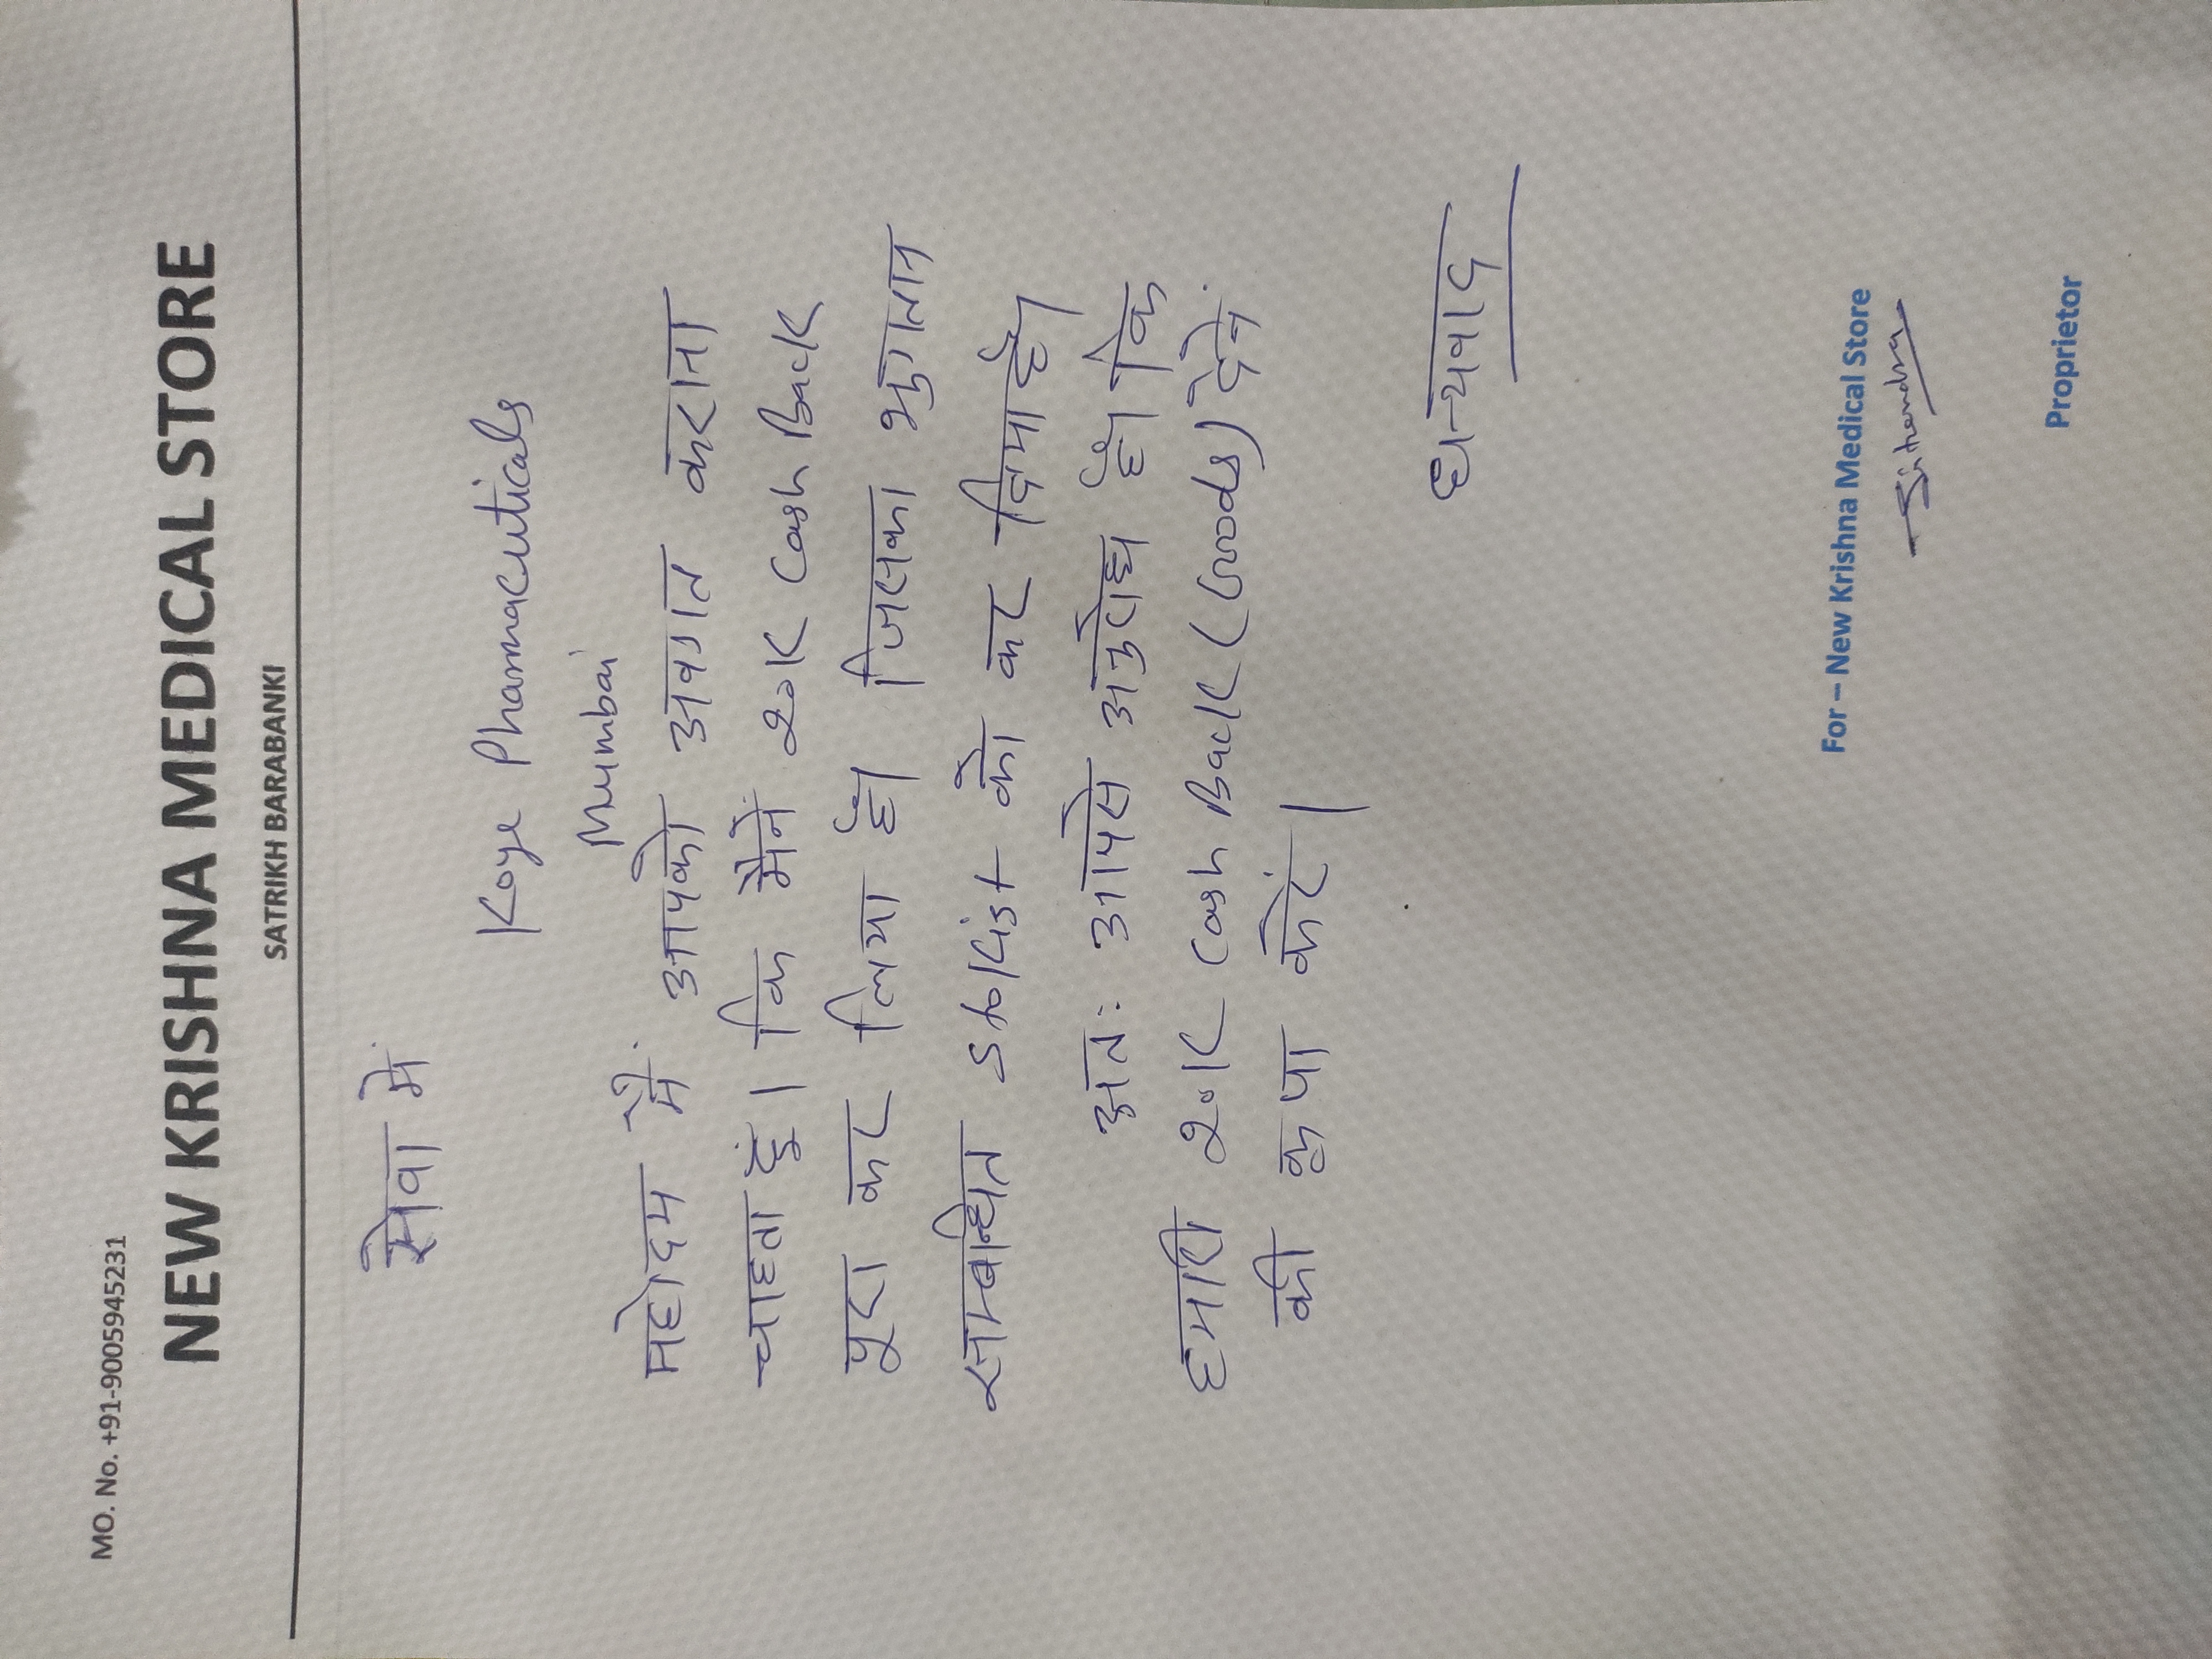 MO. No. +91-9005945231
NEW KRISHNA MEDICAL STORE
SATRIKH BARABANKI
सेवा में
Koye Pharmaceuticals
Mumbai
महोदय मैं आपको अवगत कराना
चाहता हूं। कि मैंने 20K Cash Back
पूरा कर लिया है। जिसका भुगतान
सम्बन्धित Stokist को कर दिया है।
अतः आपसे अनुरोध है। कि
हमारी 20K Cash Back (Goods) देने
की कृपा करें।
धन्यवाद
For – New Krishna Medical Store
Proprietor